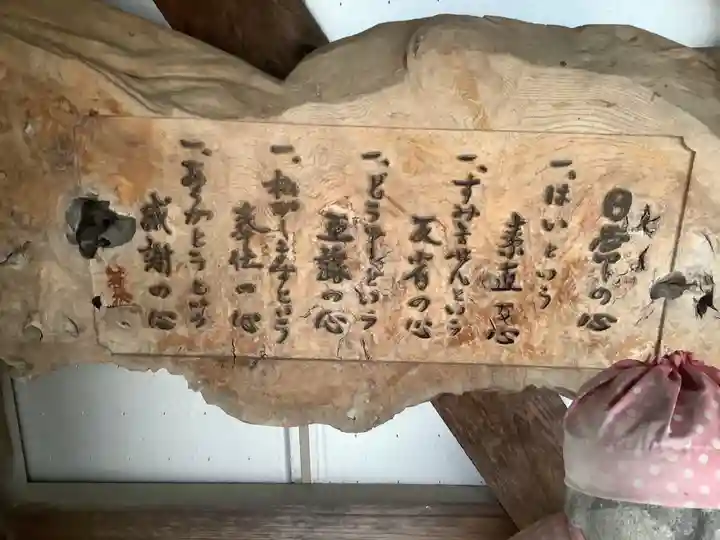 日常の心
一、はいという
素直な心
一、すみませんという
反省の心
一、どうぞという
互譲の心
一、私がしますという
奉仕の心
一、ありがとうという
感謝の心